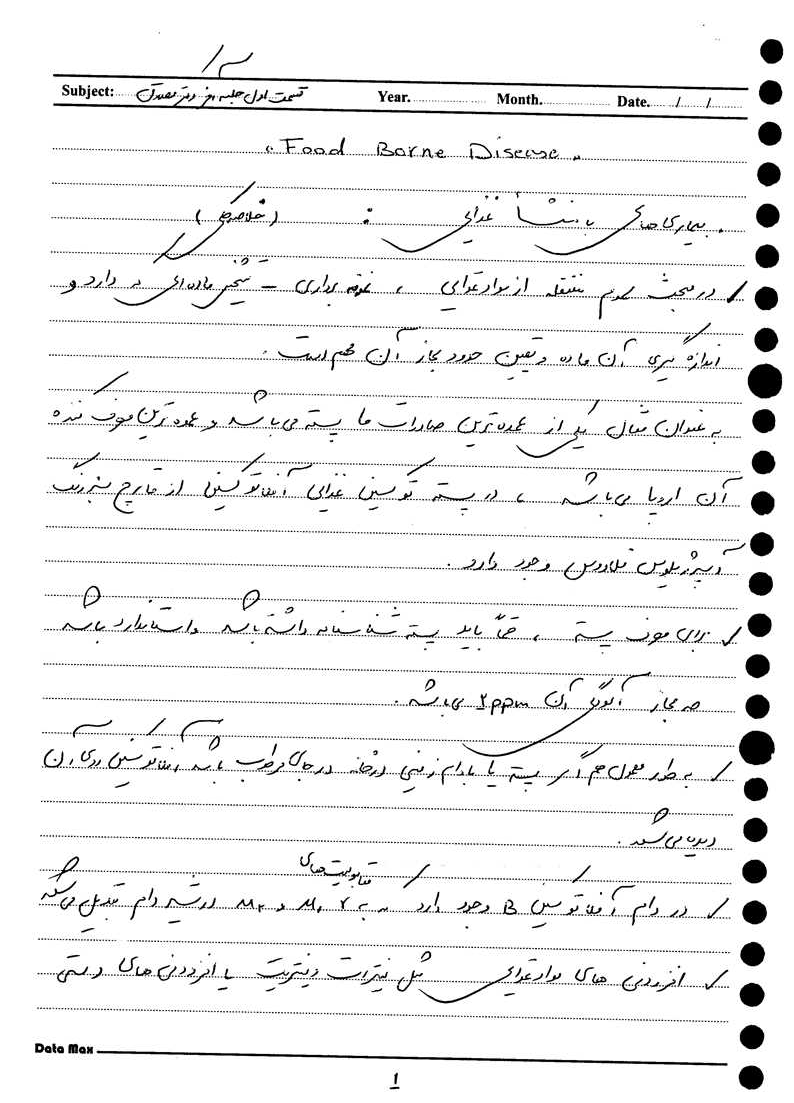 Subject: قسمت اول جلسه دکتر مصداق Year. Month. Date. / /
" Food Borne Disease "
. بیماری های با منشأ غذایی : (خلاصه)
✓ در مبحث سموم منتقله از مواد غذایی ، نمونه برداری – تشخیص ماده ای که دارد و
اندازه گیری آن ماده و تعیین حدود مجاز آن مهم است .
به عنوان مثال یکی از عمده ترین صادرات ما پسته می باشد و عمده ترین مصرف کننده
آن اروپا می باشد ، در پسته توکسین غذایی آفلاتوکسین از قارچ سبز رنگ
آسپرژیلوس فلاووس وجود دارد .
✓ برای مصرف پسته ، حتماً باید پسته شناسنامه داشته باشد و استاندارد باشد
حد مجاز آلودگی آن 2 ppm می باشد .
✓ به طور معمول هم اگر پسته یا بادام زمینی در خانه در جای مرطوب باشد آفلاتوکسین روی آن
دیده می شود .
متابولیت های
✓ در دام آفلاتوکسین B وجود دارد که به M۱ و M۲ در شیر دام تبدیل می شود
✓ افزودنی های مواد غذایی مثل نیترات و نیتریت یا افزودنی های دستی
Data Max
1